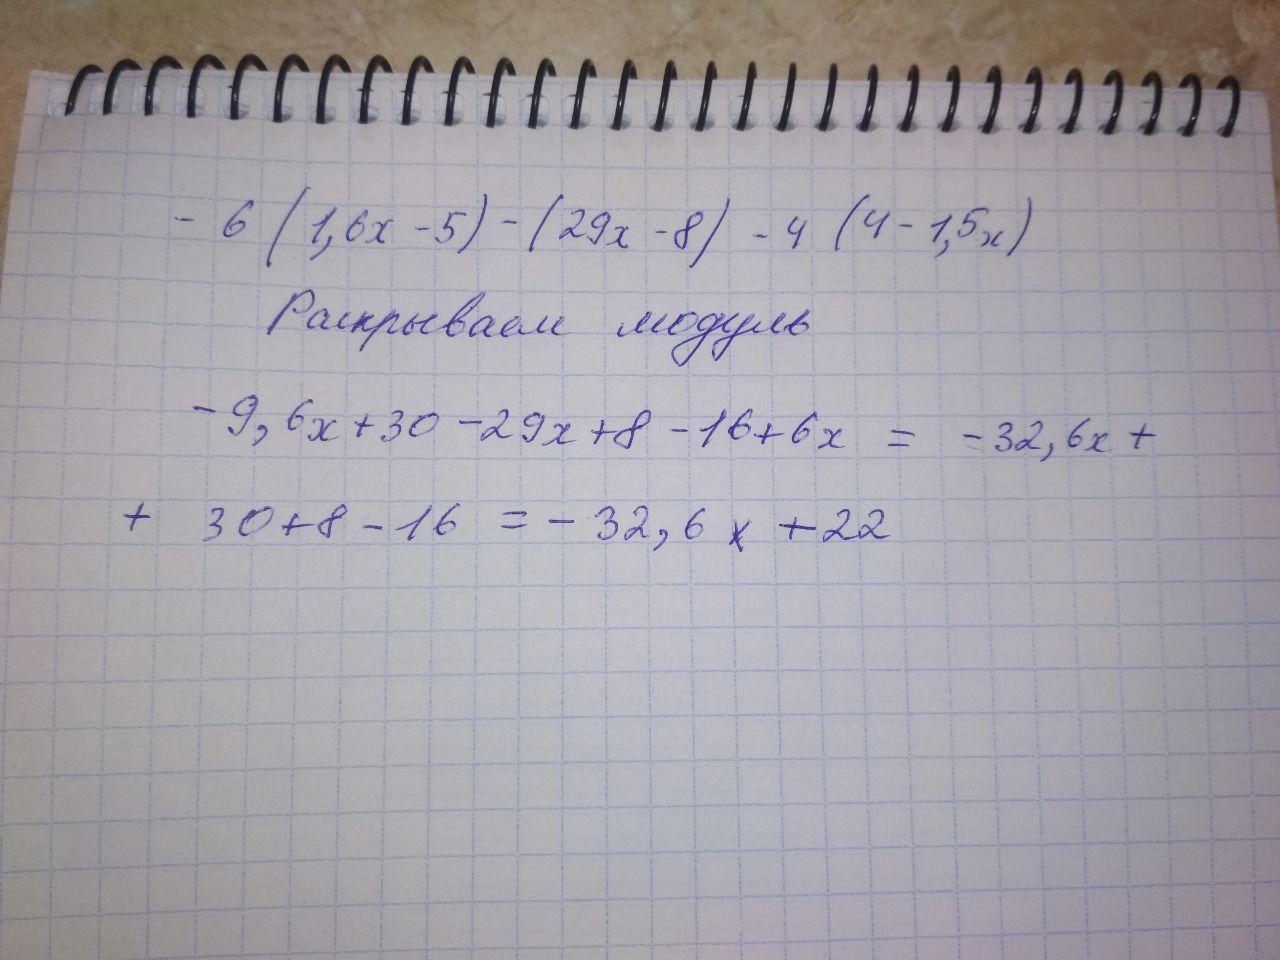 - 6 (1,6x - 5) - (29x - 8) - 4 (4 - 1,5x)
Раскрываем модуль
- 9,6x + 30 - 29x + 8 - 16 + 6x = - 32,6x +
+ 30 + 8 - 16 = - 32,6x + 22